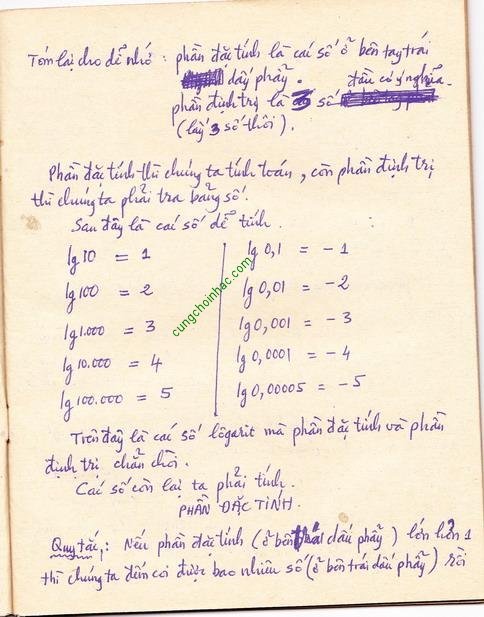 Tóm lại cho dễ nhớ : phần đặc tính là các số ở bên tay trái
dấy phẩy. đầu có ý nghĩa.
phần định trị là 3 số
(lấy 3 số thôi).
Phần đặc tính thì chúng ta tính toán, còn phần định trị
thì chúng ta phải tra bảng số.
Sau đây là các số dễ tính.
lg 10 = 1 lg 0,1 = -1
lg 100 = 2 lg 0,01 = -2
lg 1.000 = 3 lg 0,001 = -3
lg 10.000 = 4 lg 0,0001 = -4
lg 100.000 = 5 lg 0,00005 = -5
cungchoinhac.com
Trên đây là các số lôgarit mà phần đặc tính và phần
định trị chẵn chòi.
Các số còn lại ta phải tính.
PHẦN ĐẶC TÍNH.
Quy tắc: Nếu phần đặc tính (ở bên trái dấu phẩy) lớn hơn 1
thì chúng ta đếm coi được bao nhiêu số (ở bên trái dấu phẩy) rồi